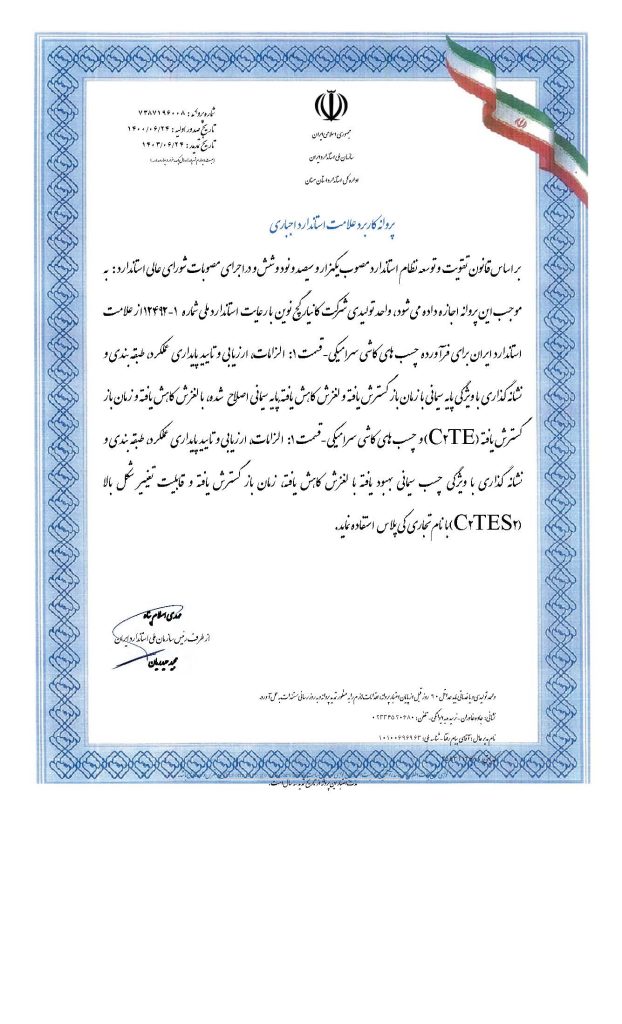 جمهوری اسلامی ایران
سازمان ملی استاندارد ایران
اداره کل استاندارد استان سمنان
شماره پروانه : ۷۳۸۷۱۹۶۰۰۸
تاریخ صدور اولیه : ۱۴۰۰/۰۶/۲۴
تاریخ تمدید : ۱۴۰۳/۰۶/۲۴
پروانه کاربرد علامت استاندارد اجباری
بر اساس قانون تقویت و توسعه نظام استاندارد مصوب یکهزار و سیصد و نود و شش و در اجرای مصوبات شورای عالی استاندارد : به
موجب این پروانه اجازه داده می شود، واحد تولیدی شرکت کانیار گچ نوین با رعایت استاندارد ملی شماره ۱-۱۲۴۹۲ از علامت
استاندارد ایران برای فرآورده چسب های کاشی سرامیکی-قسمت ۱: الزامات، ارزیابی و تایید پایداری عملکرد، طبقه بندی و
نشانه گذاری با ویژگی پایه سیمانی با زمان باز گسترش یافته و لغزش کاهش یافته پایه سیمانی اصلاح شده، با لغزش کاهش یافته و زمان باز
گسترش یافته (C۲TE) و چسب های کاشی سرامیکی-قسمت ۱: الزامات، ارزیابی و تایید پایداری عملکرد، طبقه بندی و
نشانه گذاری با ویژگی چسب سیمانی بهبود یافته با لغزش کاهش یافته، زمان باز گسترش یافته و قابلیت تغییر شکل بالا
(C۲TES۲) با نام تجاری کی پلاس استفاده نماید.
مهدی اسلام پناه
از طرف رئیس سازمان ملی استاندارد ایران
مجید حیدریان
واحد تولیدی و یا خدماتی باید حداقل ۶۰ روز قبل از پایان اعتبار پروانه، اقدامات لازم را به منظور تمدید پروانه و به روز رسانی مستندات به عمل آورد.
نشانی: جاده خاوران - - تلفن: ۰۲۳۳۴۵۲۰۶۸۰
نام مدیرعامل: آقای پیام - شناسه ملی: ۱۰۱۰۰۶۹۶۹۶۳
مدت اعتبار این پروانه از تاریخ تمدید سه سال است.